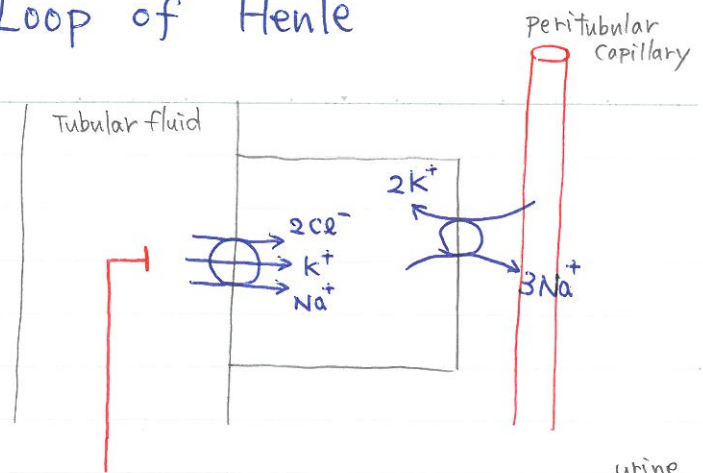 Loop of Henle
Peritubular
Capillary
Tubular fluid
2K⁺
2Cl⁻
K⁺
Na⁺
3Na⁺
urine